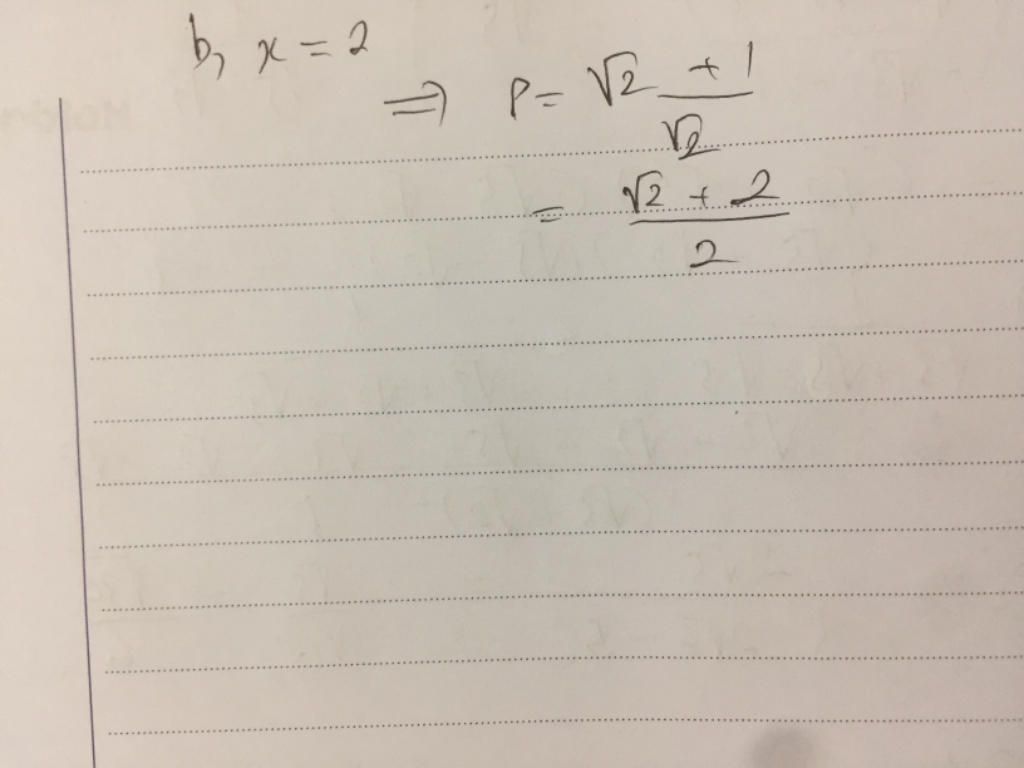 b, x = 2
⇒ P = (√2 + 1)/√2
= (√2 + 2)/2